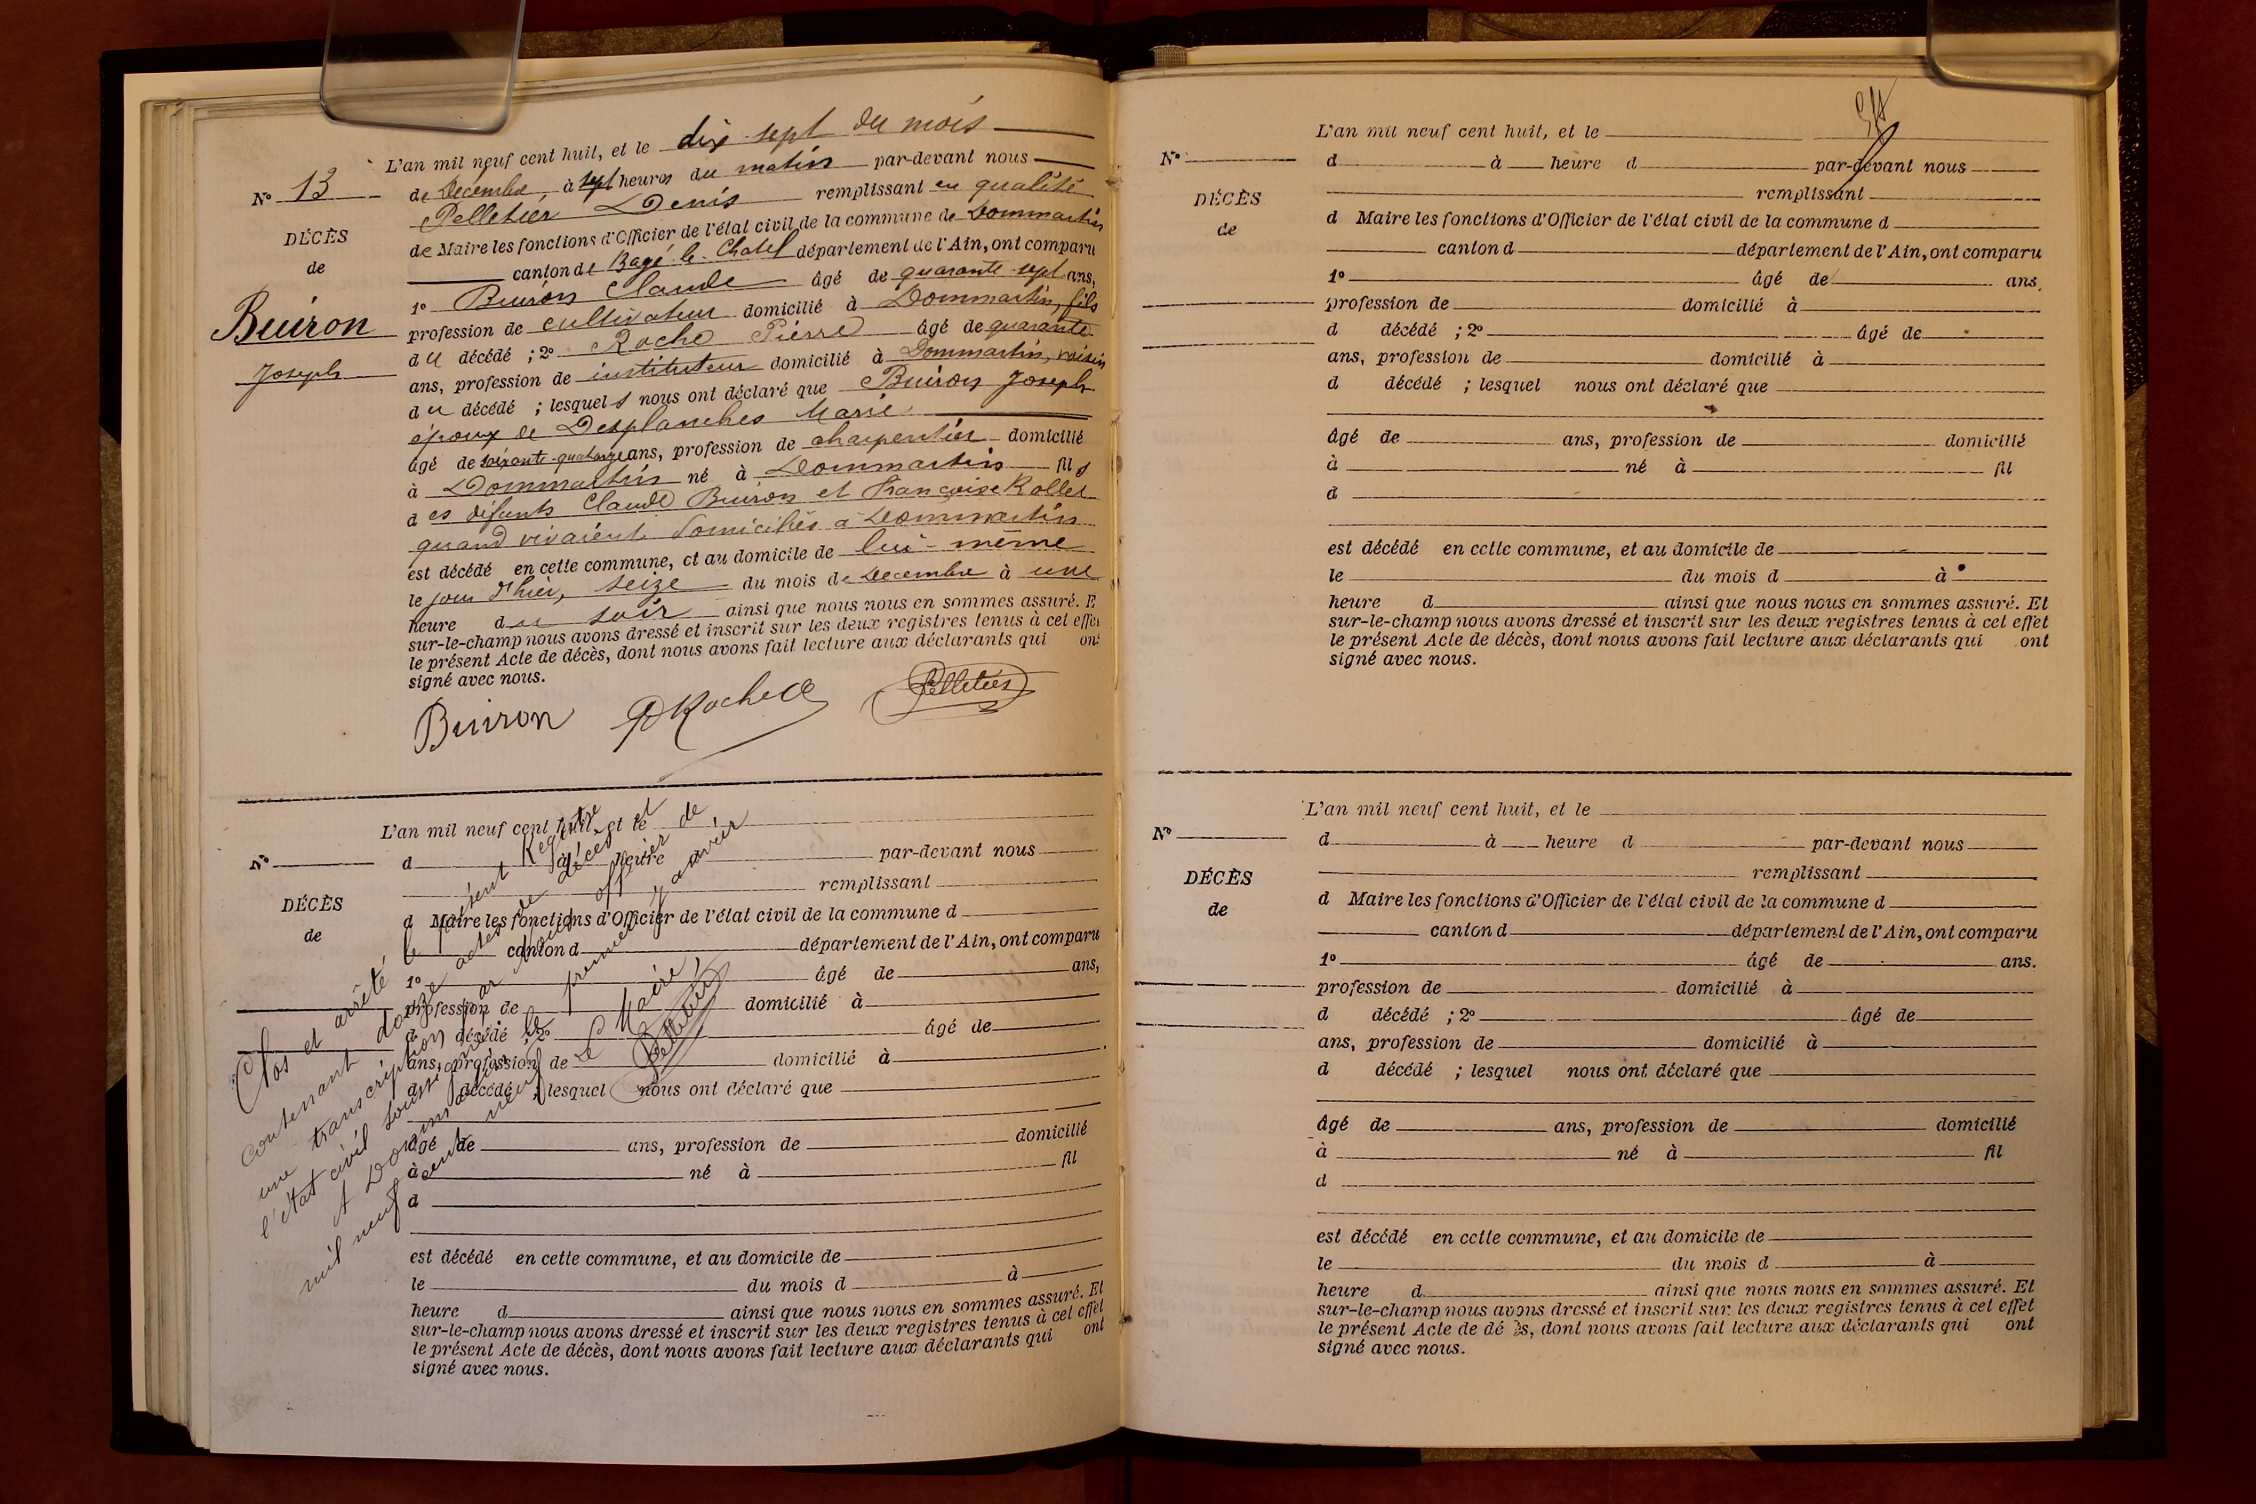 L'an mil neuf cent huit, et le dix sept du mois
N° 13
de Décembre, à sept heures du matin par-devant nous
Pelletier Denis remplissant en qualité
DÉCÈS
de Maire les fonctions d'Officier de l'état civil de la commune de Dommartin
de
canton de Bagé-le-Chatel département de l'Ain, ont comparu
1° Buiron Claude âgé de quarante-sept ans,
Buiron
profession de cultivateur domicilié à Dommartin, fils
du décédé ; 2° Roche Pierre âgé de quarante
Joseph
ans, profession de instituteur domicilié à Dommartin, voisin
du décédé ; lesquels nous ont déclaré que Buiron Joseph
époux de Desplanches Marie
âgé de soixante-quatorze ans, profession de charpentier domicilié
à Dommartin né à Dommartin fils
des défunts Claude Buiron et Françoise Rollet
quand vivaient domiciliés à Dommartin
est décédé en cette commune, et au domicile de lui-même
le jour d'hier, seize du mois de Décembre à une
heure du soir ainsi que nous nous en sommes assuré. E
sur-le-champ nous avons dressé et inscrit sur les deux registres tenus à cet effet
le présent Acte de décès, dont nous avons fait lecture aux déclarants qui ont
signé avec nous.
Buiron P Roche Pelletier
L'an mil neuf cent huit, et le
N°
d à heure d par-devant nous
remplissant
DÉCÈS
d Maire les fonctions d'Officier de l'état civil de la commune d
de
canton d département de l'Ain, ont comparu
1° âgé de ans,
profession de domicilié à
d décédé ; 2° âgé de
ans, profession de domicilié à
d décédé ; lesquel nous ont déclaré que
âgé de ans, profession de domicilié
à né à fil
d
est décédé en cette commune, et au domicile de
le du mois d à
heure d ainsi que nous nous en sommes assuré. Et
sur-le-champ nous avons dressé et inscrit sur les deux registres tenus à cet effet
le présent Acte de décès, dont nous avons fait lecture aux déclarants qui ont
signé avec nous.
Clos et arrêté le présent Registre
contenant douze actes de décès et
une transcription par Nous officier de
l'état civil soussigné
A Dommartin le premier janvier
mil neuf cent neuf
Le Maire,
Pelletier
L'an mil neuf cent huit, et le
N°
d à heure d par-devant nous
remplissant
DÉCÈS
d Maire les fonctions d'Officier de l'état civil de la commune d
de
canton d département de l'Ain, ont comparu
1° âgé de ans,
profession de domicilié à
d décédé ; 2° âgé de
ans, profession de domicilié à
d décédé ; lesquel nous ont déclaré que
âgé de ans, profession de domicilié
à né à fil
d
est décédé en cette commune, et au domicile de
le du mois d à
heure d ainsi que nous nous en sommes assuré. Et
sur-le-champ nous avons dressé et inscrit sur les deux registres tenus à cet effet
le présent Acte de décès, dont nous avons fait lecture aux déclarants qui ont
signé avec nous.
L'an mil neuf cent huit, et le
N°
d à heure d par-devant nous
remplissant
DÉCÈS
d Maire les fonctions d'Officier de l'état civil de la commune d
de
canton d département de l'Ain, ont comparu
1° âgé de ans.
profession de domicilié à
d décédé ; 2° âgé de
ans, profession de domicilié à
d décédé ; lesquel nous ont déclaré que
âgé de ans, profession de domicilié
à né à fil
d
est décédé en cette commune, et au domicile de
le du mois d à
heure d ainsi que nous nous en sommes assuré. Et
sur-le-champ nous avons dressé et inscrit sur les deux registres tenus à cet effet
le présent Acte de dé ès, dont nous avons fait lecture aux déclarants qui ont
signé avec nous.